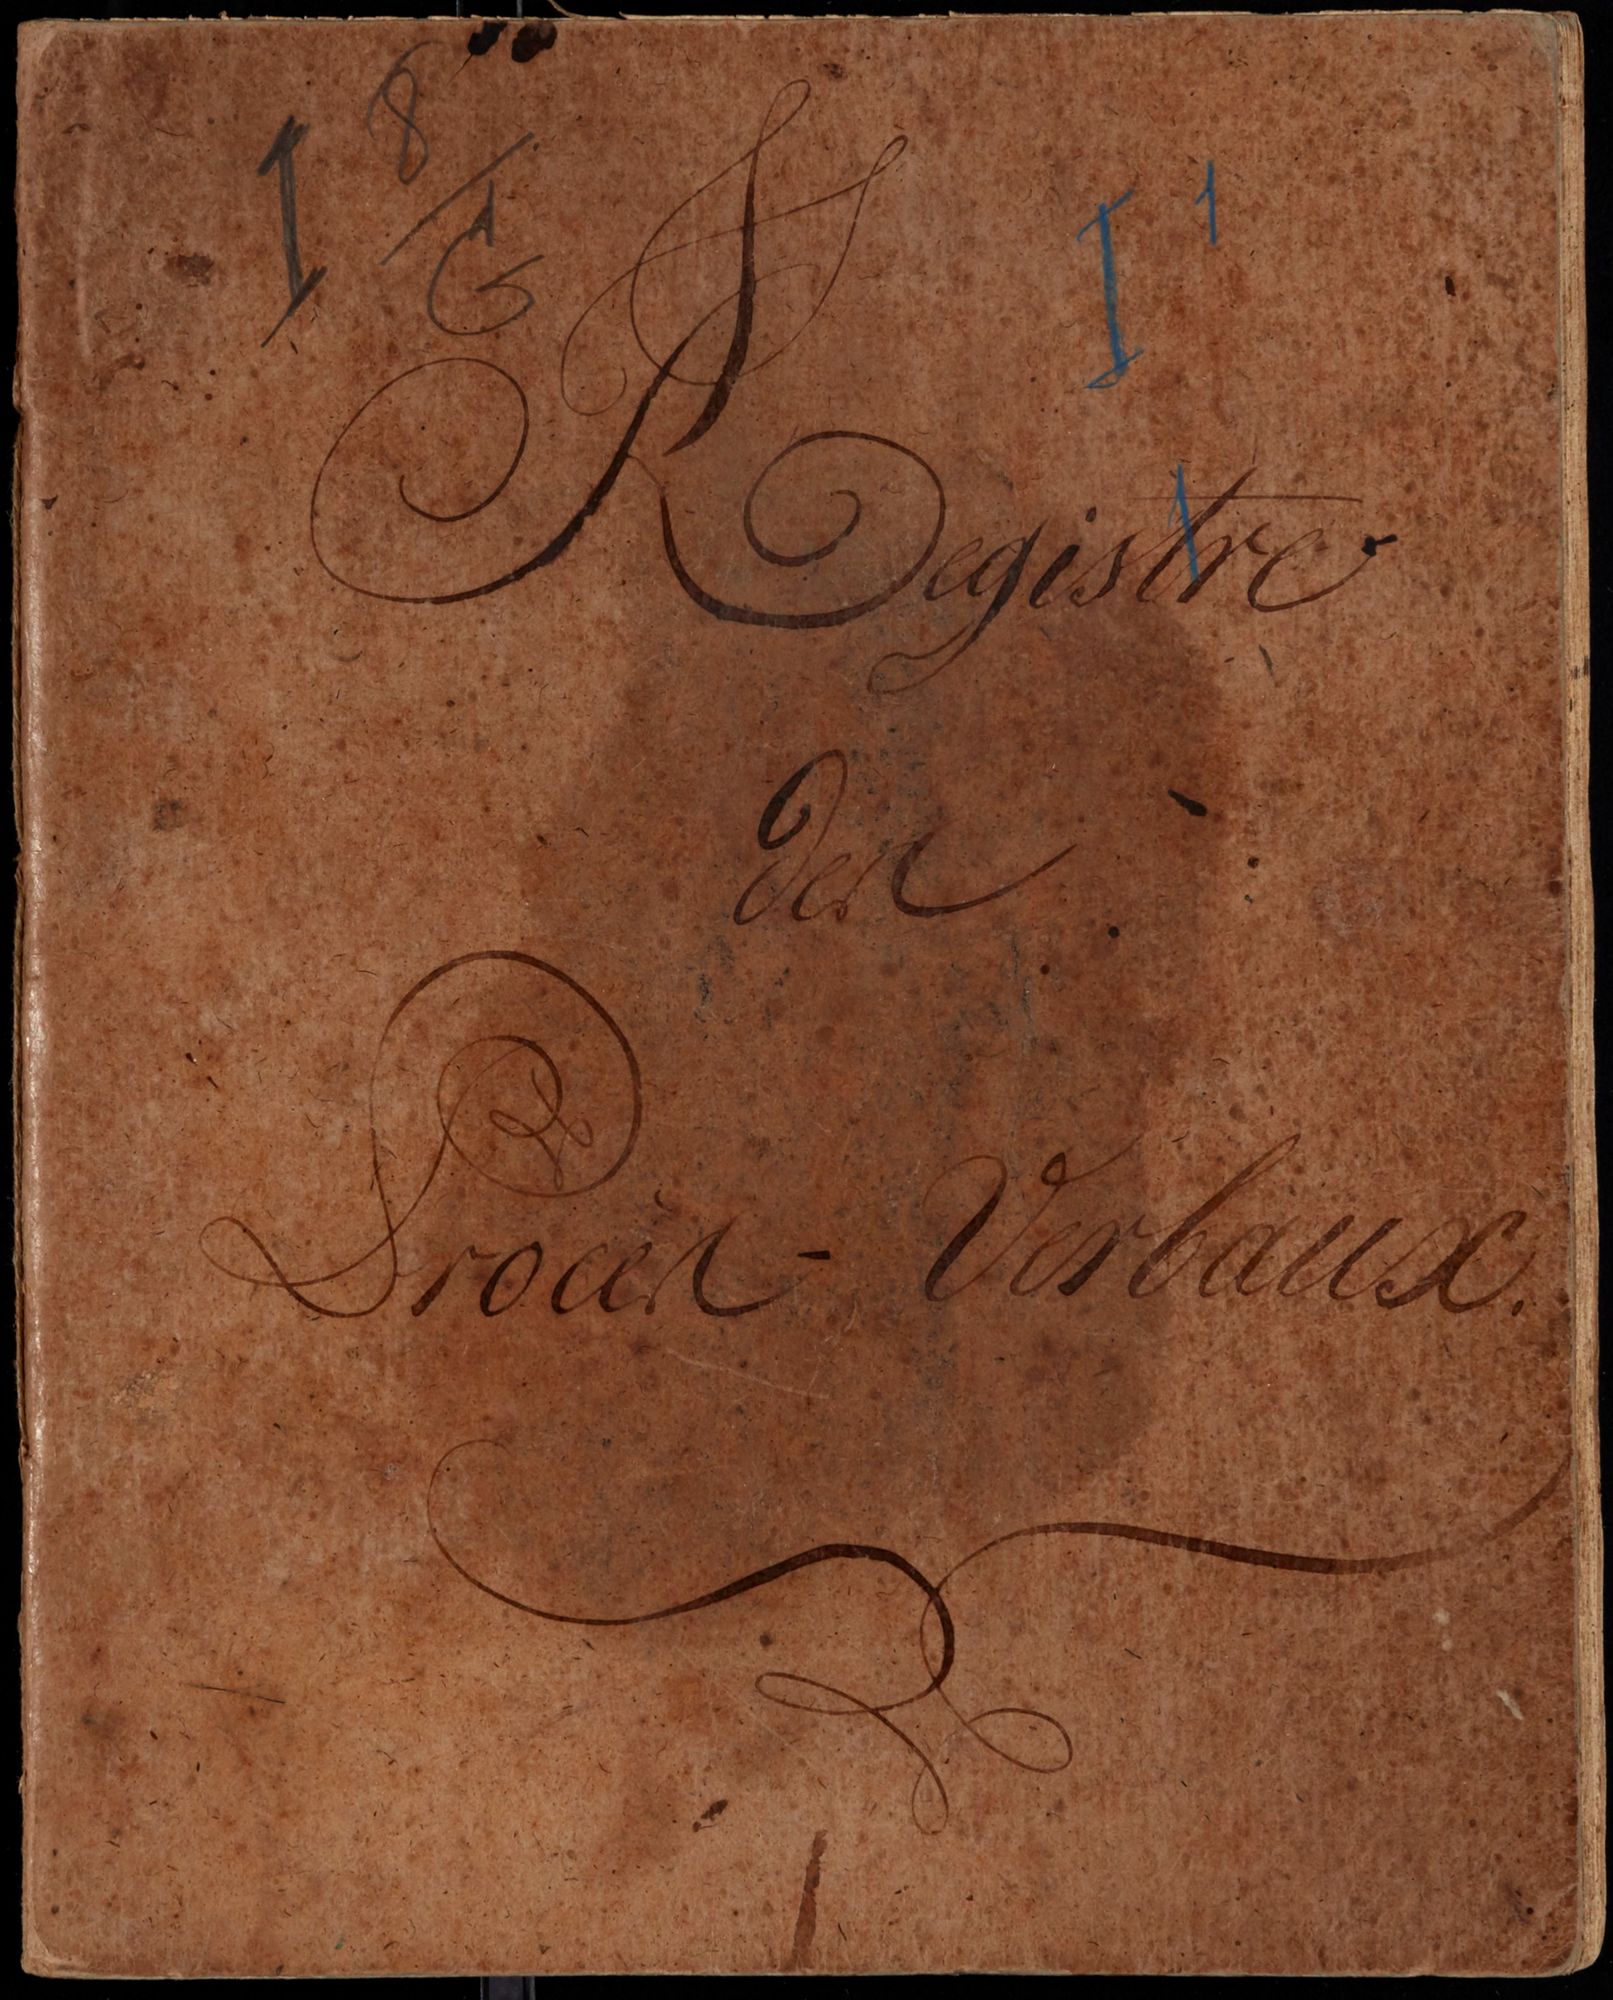 I 8/G
I 1
Registre
des
Procès - Verbaux.